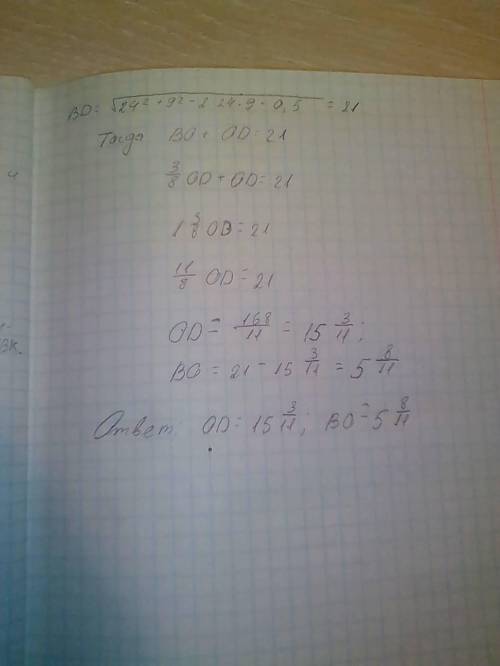 BD = √24² + 9² - 2 · 24 · 9 · 0,5 = 21
Тогда BO + OD = 21
3/8 OD + OD = 21
1 3/8 OD = 21
11/8 OD = 21
OD = 168/11 = 15 3/11;
BO = 21 - 15 3/11 = 5 8/11
Ответ. OD = 15 3/11; BO = 5 8/11